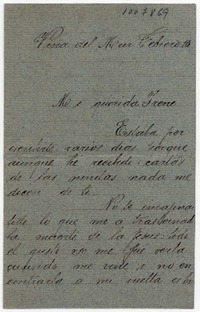 1007869
Viña del Mar Febrero 23
Mi querida Irene
Estaba por
escribirte varios dias porque
aunque he recibido cartas
de las niñitas nada me
dicen de ti.
No te imajinas
lo que me a trastornado
la muerte de la
el gusto no me fué verla
cuando me vine i no en
contrarla a mi vuelta es